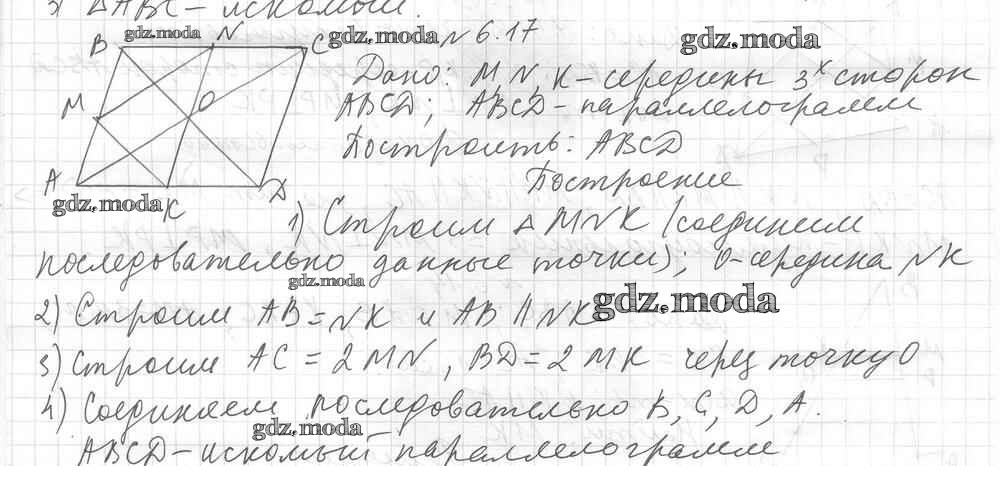 3) △ABC – искомый.
B gdz.moda N C gdz.moda № 6.17 gdz.moda
Дано: M, N, K – середины 3ˣ сторон
M O ABCD; ABCD – параллелограмм
Построить: ABCD
A K D Построение
gdz.moda
1) Строим △ MNK (соединим
последовательно данные точки); O – середина NK
gdz.moda
2) Строим AB = NK и AB || NK gdz.moda
3) Строим AC = 2MN, BD = 2MK – через точку O
4) Соединяем последовательно B, C, D, A.
gdz.moda
ABCD – искомый параллелограмм